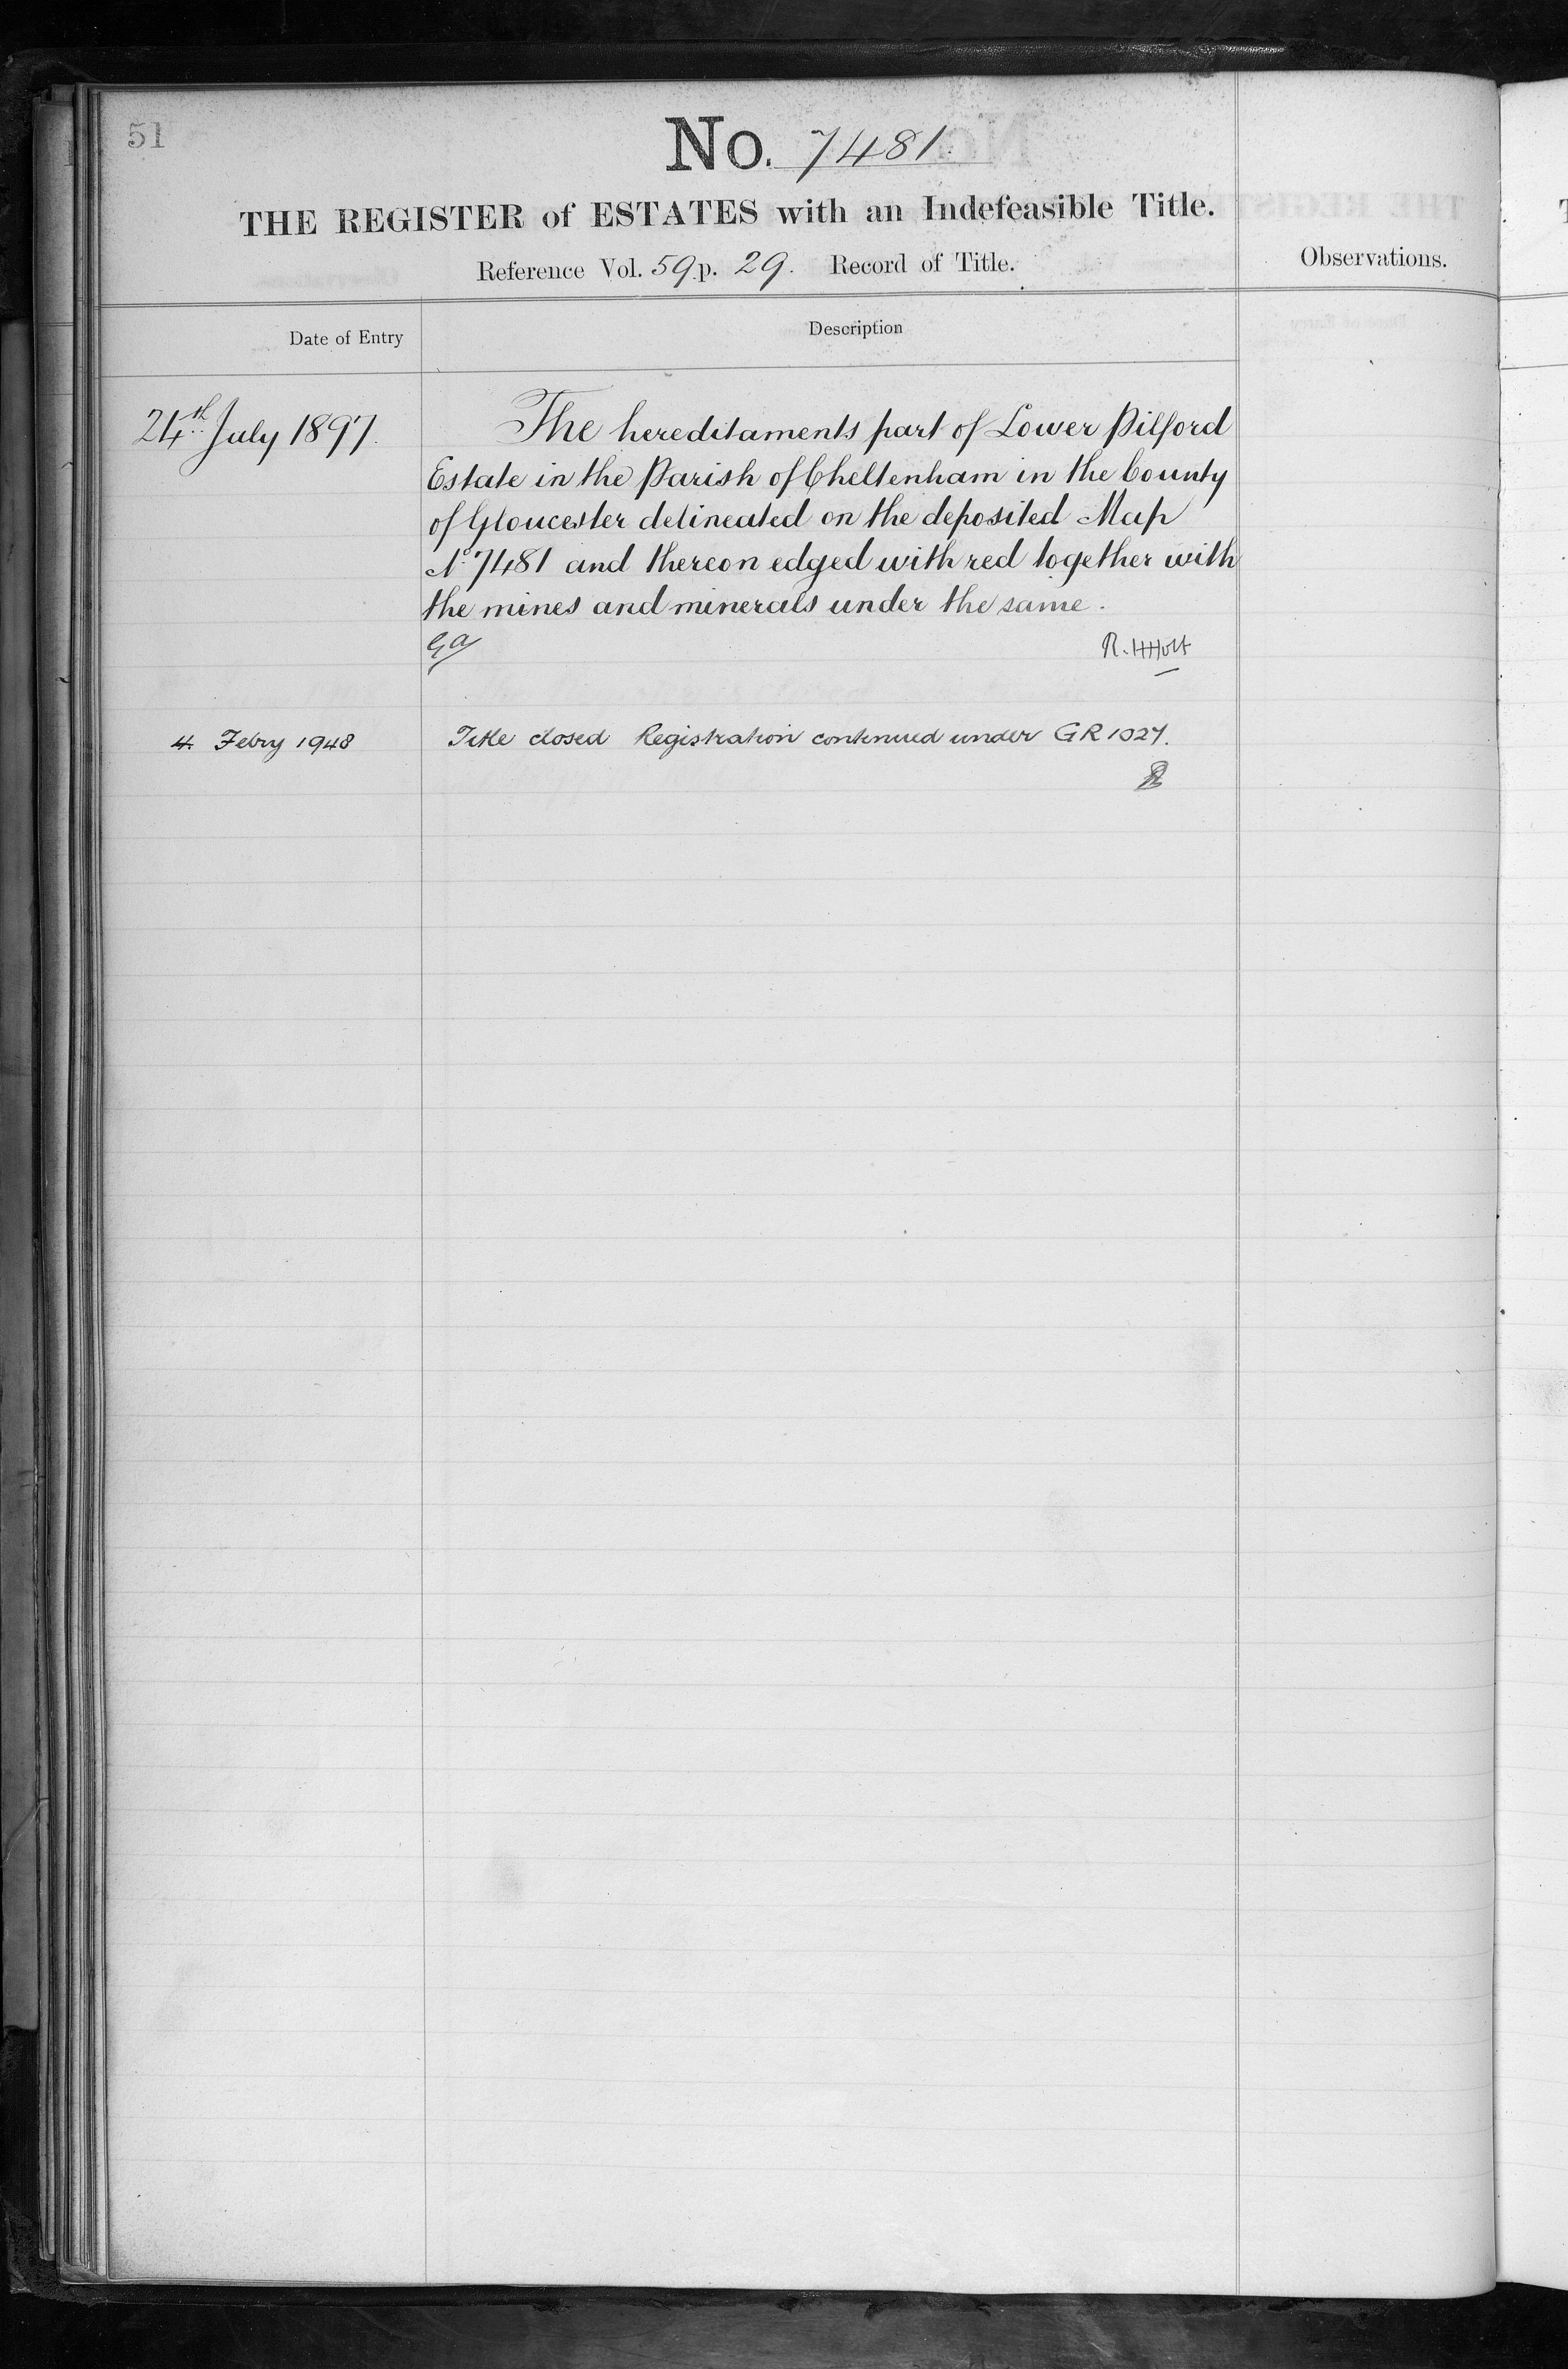 51
No. 7481.
THE REGISTER of ESTATES with an Indefeasible Title.
Reference Vol. 59 p. 29. Record of Title.
Observations.
Date of Entry
Description
24th July 1897.
The hereditaments part of Lower Pilford
Estate in the Parish of Cheltenham in the County
of Gloucester delineated on the deposited Map
No 7481 and thereon edged with red together with
the mines and minerals under the same.
R. H Holt
4 Febry 1948
Title closed Registration continued under GR 1027.